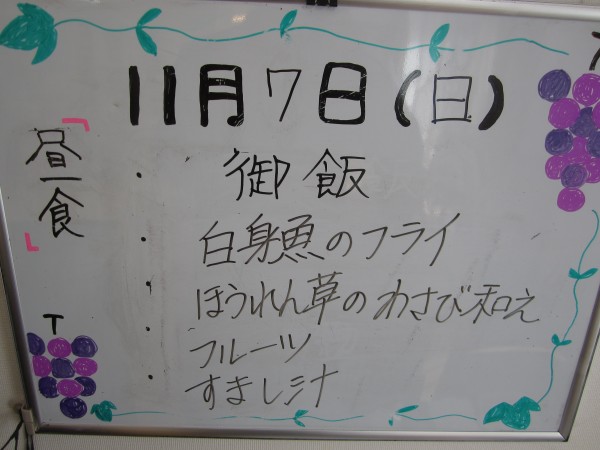 11月7日(日)
昼食
・御飯
・白身魚のフライ
・ほうれん草のわさび和え
・フルーツ
・すまし汁